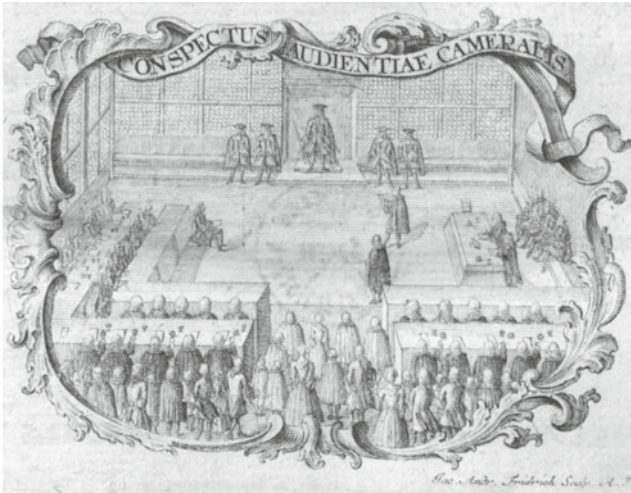 CONSPECTUS AUDIENTIAE CAMERALIS.
Jac. Andr. Fridrich Sculp. A. V.